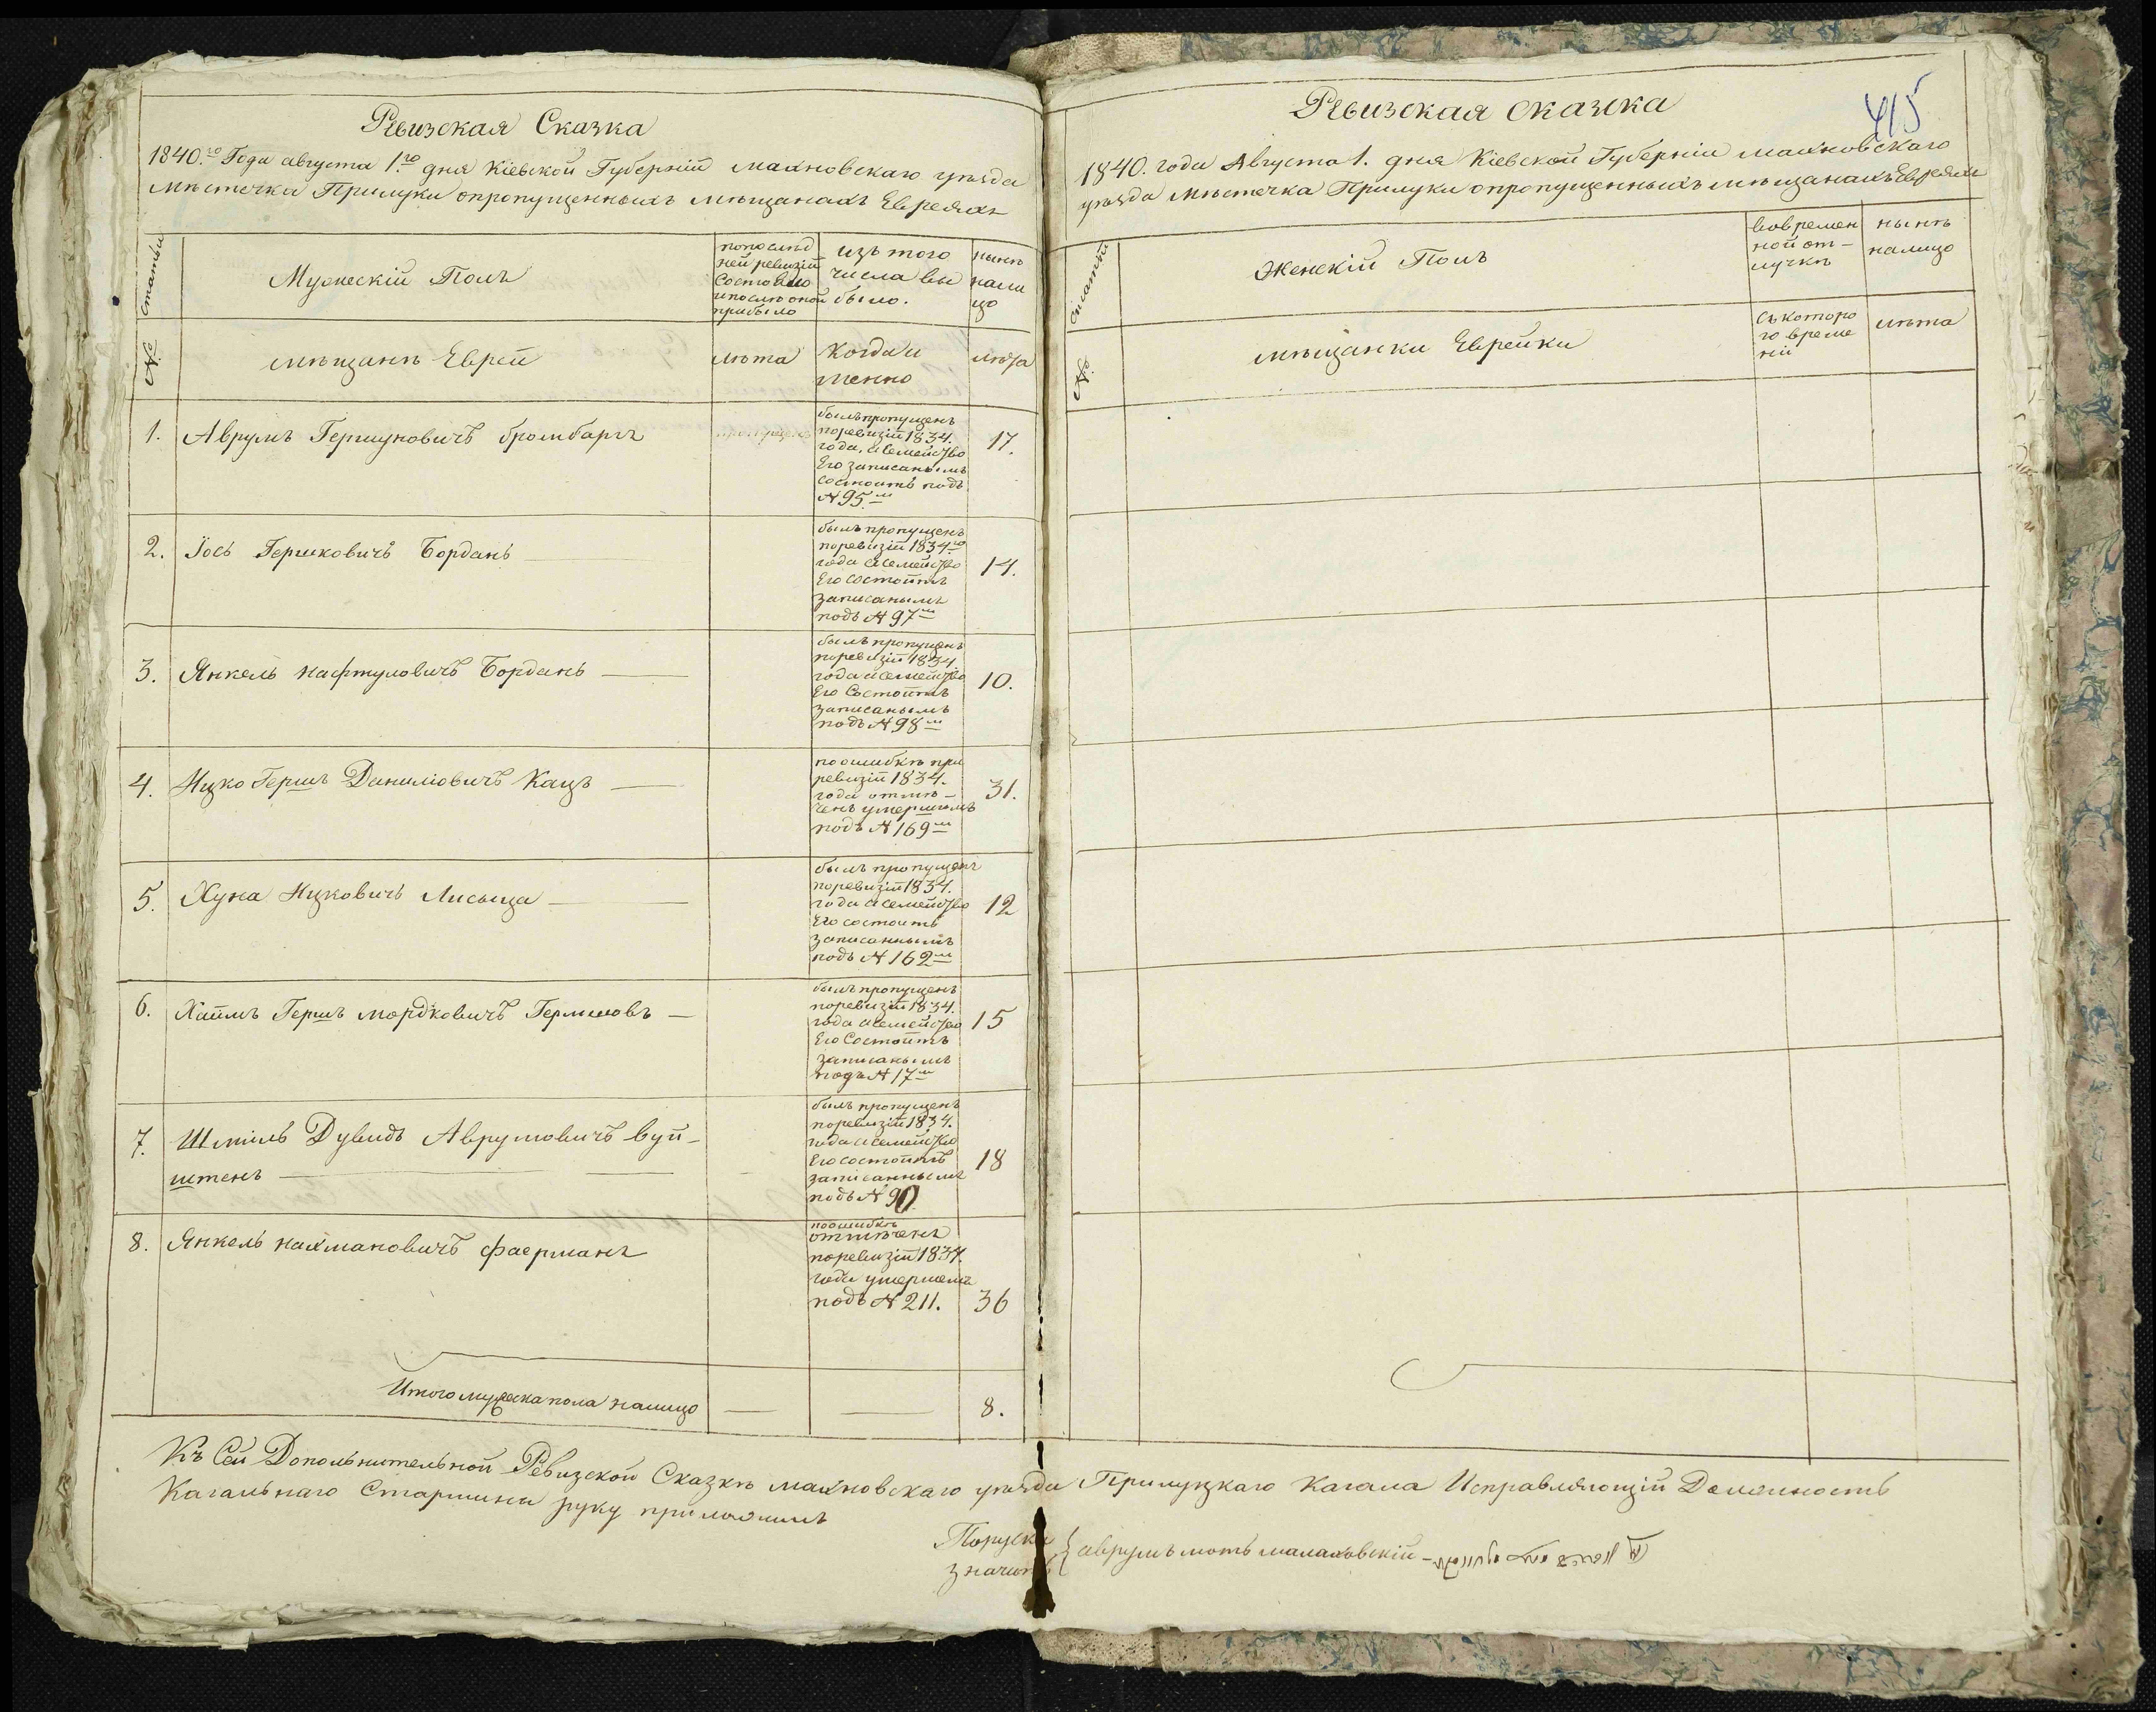 Ревизская Сказка
1840.го Года августа 1.го дня Кіевской Губерніи махновскаго уѣзда
мѣстечка Прилуки опропущенныхъ мѣщанахъ Евреяхъ
статьи
Мужескій Полъ
попослѣд
ней ревизіи
Состояло
ипослѣ оной
прибыло
изъ того
числа вы
было.
нынѣ
нали
цо
№
мѣщанѣ Еврей
лѣта
когда и
менно
лѣта
1. Аврумъ Гершуновичъ бромбаргъ
пропущенъ
былъ пропущенъ
поревизіи 1834.
года, и Семейство
Его записанымъ
состоитъ подъ
№ 95.м
17.
2. Іось Гершковичъ Борданъ
былъ пропущенъ
поревизіи 1834.го
года и Семейство
Его состоитъ
записанымъ
подъ № 97м
14.
3. Янкель нафтуловичъ Борданъ
былъ пропущенъ
поревизіи 1834.
года и Семейство
Его Состоитъ
записанымъ
подъ № 98м
10.
4. Ицко Гершъ Даниловичъ Кацъ
поошибкѣ при
ревизіи 1834.
года отмѣ-
ченъ умершимъ
подъ № 169м
31.
5. Хуна Ицковичъ Лисыца
былъ пропущенъ
поревизіи 1834.
года и Семейство
Его состоитъ
записаннымъ
подъ № 162м
12
6. Хаимъ Гершъ мордковичъ Гершовъ
былъ пропущенъ
поревизіи 1834.
года и Семейство
Его Состоитъ
записанымъ
подъ № 17м
15
7. Шміль Дувидъ Аврумовичъ вуй-
штенъ
былъ пропущенъ
поревизіи 1834.
года и Семейство
Его состоитъ
записаннымъ
подъ № 90
18
8. Янкель нахмановичъ фаерманъ
поошибкѣ
отмѣченъ
поревизіи 1834.
года умершемъ
подъ № 211.
36
Итого мужеска пола налицо
8.
Ревизская сказка
415
1840. года Августа 1. дня Кіевской Губерніи махновскаго
уѣзда мѣстечка Прилуки опропущенныхъ мѣщанахъ Евреяхъ
статьи
Женскій Полъ
вовремен
ной от-
лучкѣ
нынѣ
налицо
№
мѣщанки Еврейки
съ которо
го време
ни
лѣта
Къ Сей Дополнительной Ревизской Сказкѣ махновскаго уѣзда Прилуцкаго Кагала Исправляющій Должность
Кагальнаго Старшины руку приложилъ
Поруски
значитъ
аврумъ мотъ малаховскій